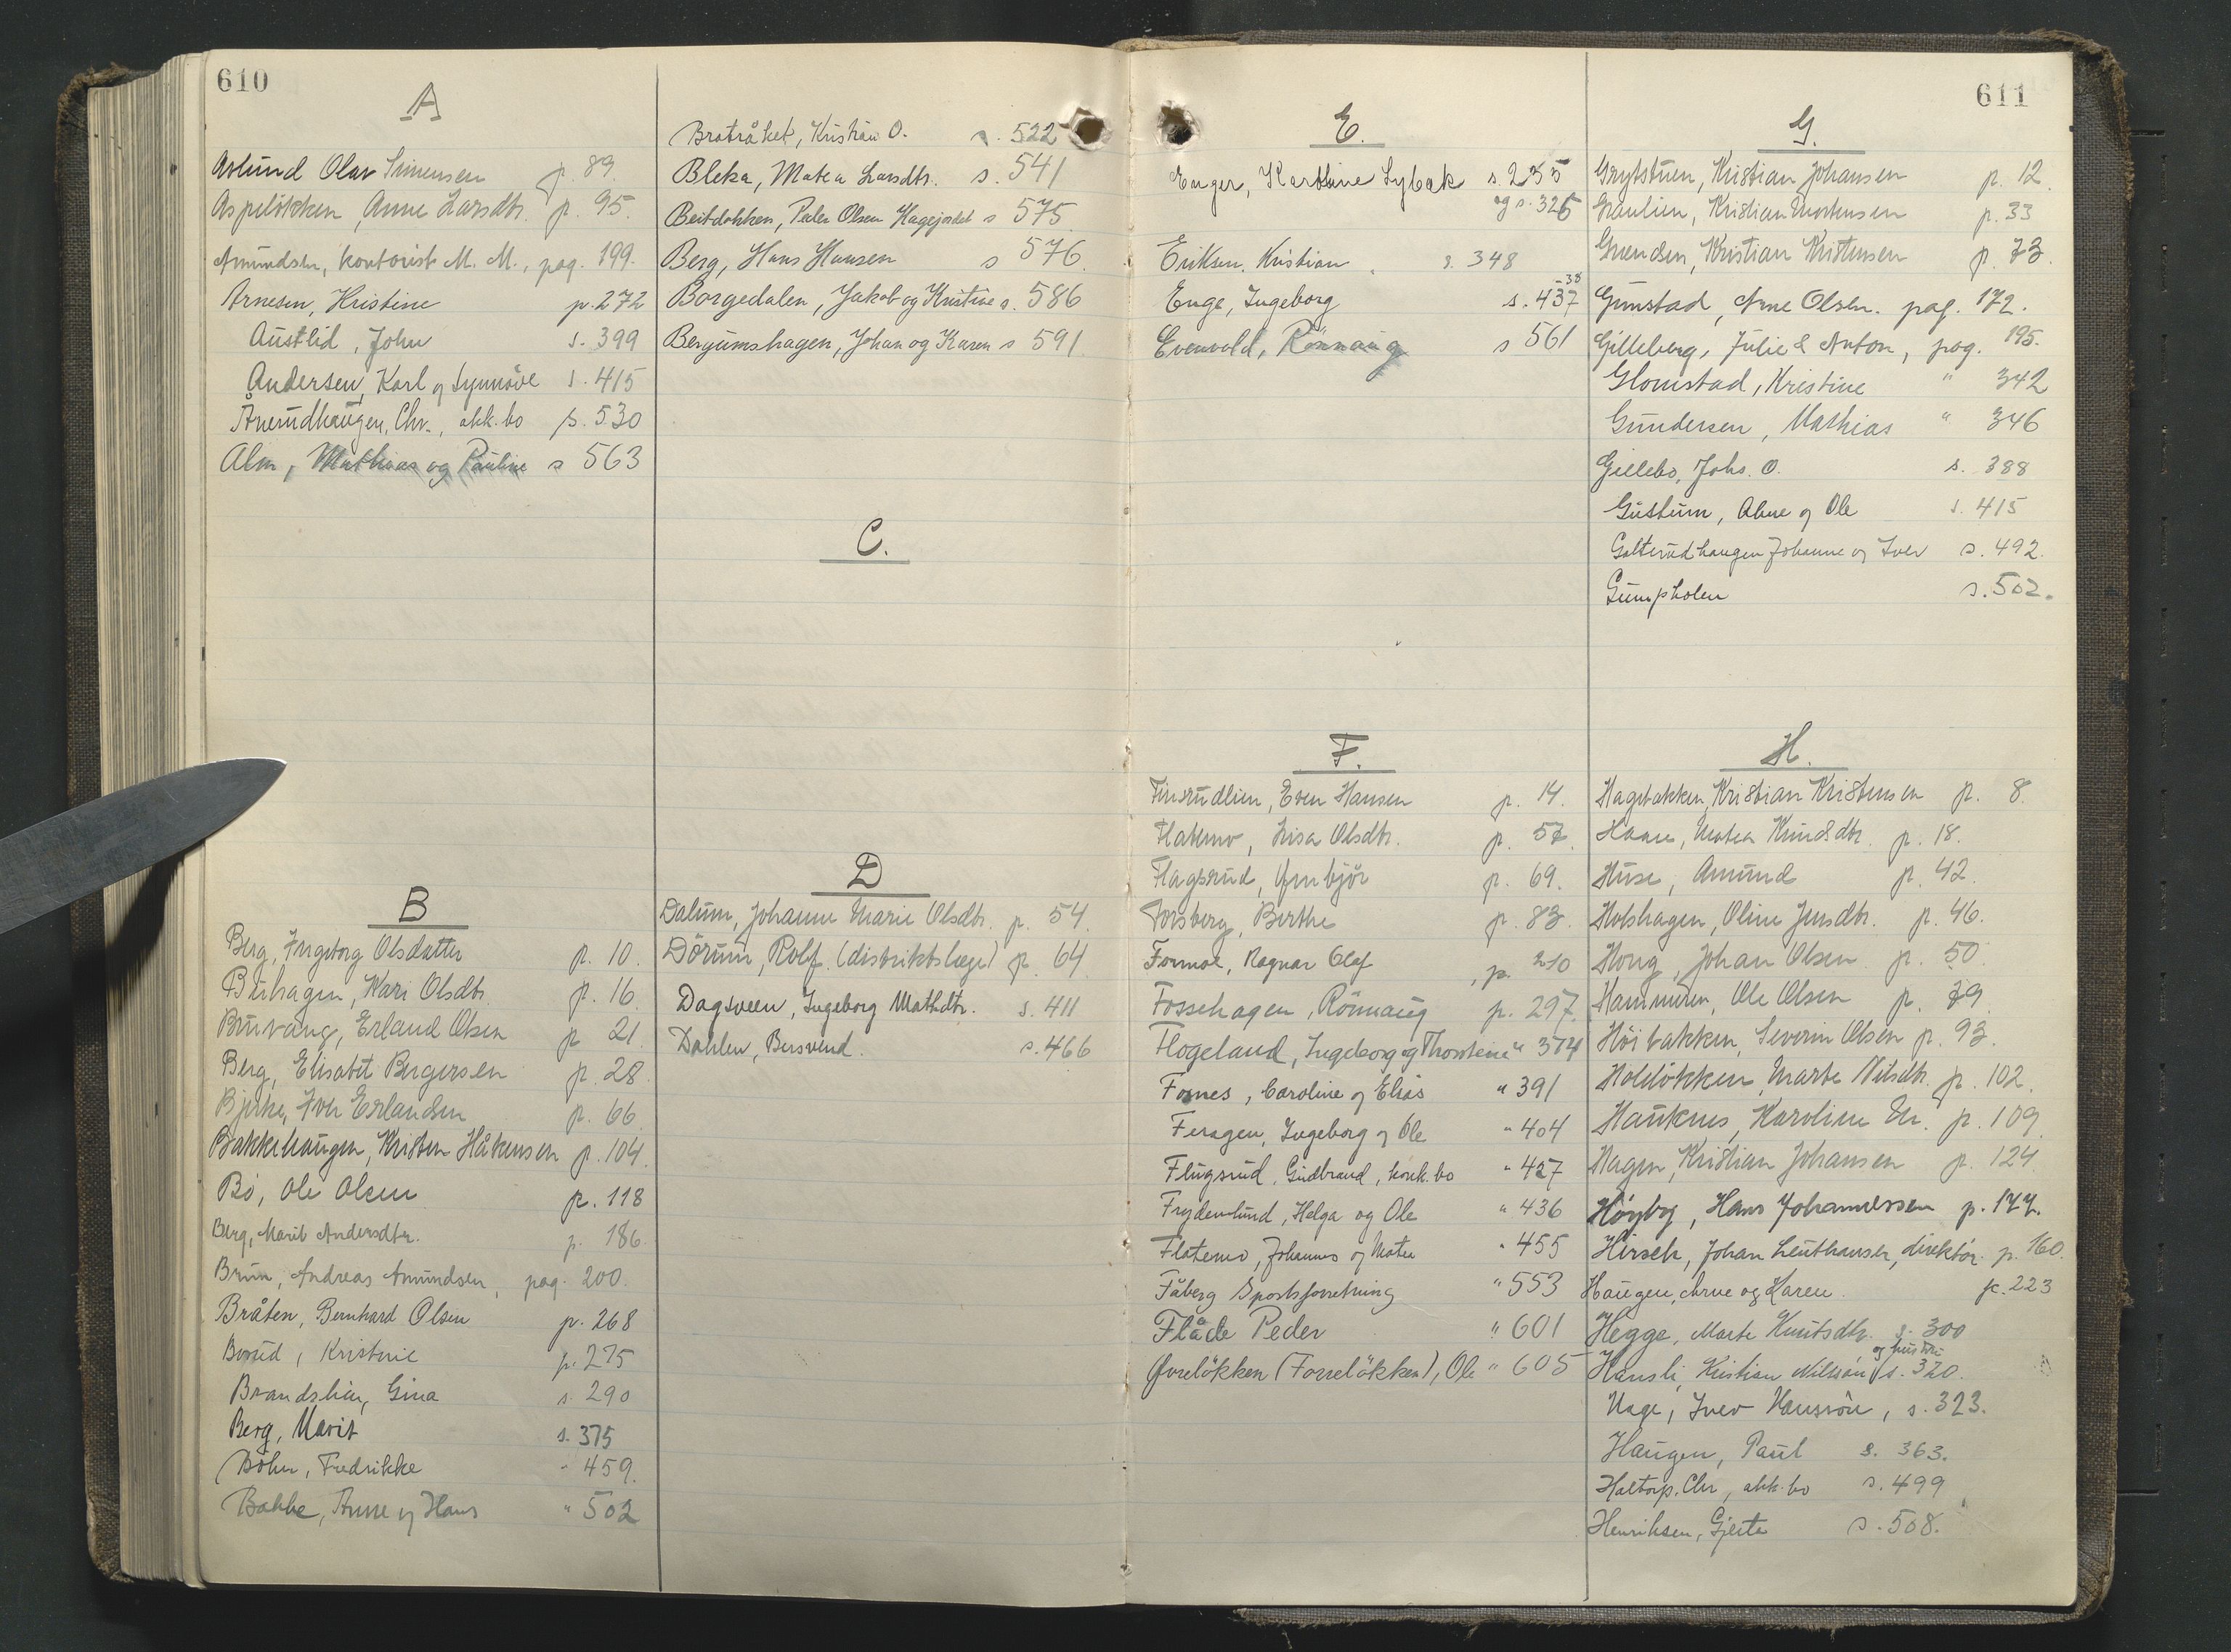 610
A
Aslund Olav Simensen p. 89.
Aspeløkken, Anne Larsdtr. p. 95.
Amundsen, kontorist M. M., pag. 199.
Arnesen, Kristine p. 272
Austlid, John s. 399
Andersen, Karl og Synnöve s. 415
Ånerudhaugen, Chr., akk.bo s. 530
Alm, Mathias og Pauline s 563
B
Berg, Ingeborg Olsdatter p. 10.
Buhagen, Kari Olsdtr. p. 16.
Bruvang, Erland Olsen p. 21.
Berg, Elisabet Bergersen p. 28.
Bjerke, Iver Erlandsen p. 66.
Bakkehaugen, Kristen Håkensen p. 104.
Bö, Ole Olsen p. 118
Berg, Marit Andersdtr. p. 186.
Brun, Andreas Amundsen, pag. 200.
Bråten, Bernhard Olsen p. 268
Borud, Kristine p. 275
Brandslien, Gina s. 290
Berg, Marit s. 375
Böhn, Fredrikke " 459.
Bakke, Anne og Hans " 502
Bratråket, Kristian O. s. 522
Bleka, Matea Larsdtr. s. 541
Beitdokken, Peder Olsen Hagejordet s 575
Berg, Hans Hansen s 576.
Borgedalen, Jakob og Kristine s. 586
Bergumshagen, Johan og Karen s 591
C.
D
Dalum, Johanne Marie Olsdtr. p. 54.
Dörum, Rolf. (distriktslæge) p. 64
Dagsveen, Ingeborg Mathdtr. s. 411
Dahlen, Bersvend. s. 466
611
E.
Enger, Karoline Lybak s. 235
og s. 326
Eriksen, Kristian. s. 348
Enge, Ingeborg s. 437-38
Evenvold, Rönnaug s 561
F.
Finsrudlien, Even Hansen p. 14.
Flatmo, Lisa Olsdtr. p. 57.
Flagsrud, Gunbjör p. 69.
Forsberg, Berthe p. 83.
Formoe, Ragnar Olaf, p. 210
Fossehagen, Rönnaug p. 297.
Flogeland, Ingeborg og Thorstein " 374
Fosnes, Caroline og Elias " 391
Feragen, Ingeborg og Ole " 404
Flugsrud, Gudbrand, konk.bo " 427
Frydenlund, Helga og Ole " 436
Flatemo, Johannes og Matea " 455
Fåberg Sportsforretning " 553
Flåde Peder " 601
Furelökken (Forrelökken), Ole " 605
G.
Grytstuen, Kristian Johansen p. 12.
Graulien, Kristian Mortensen p. 33
Grendsen, Kristian Kristensen p. 73.
Gunstad, Arne Olsen. pag. 172.
Gilleberg, Julie & Anton, pag. 195.
Glomstad, Kristine " 342
Gundersen, Mathias " 346
Gillebo, Johs. O. s. 388
Gustum, Anne og Ole s. 415
Galterudhaugen Johanne og Iver s. 492.
Gumpholen s. 502.
H.
Hagebakken, Kristian Kristensen p. 8.
Haave, Matea Knudsdtr. p. 18.
Huse, Amund p. 42.
Holshagen, Oline Jensdtr. p. 46.
Hong, Johan Olsen p. 50.
Hammeren, Ole Olsen p. 79.
Höibakken, Severin Olsen p. 93.
Holelökken, Marte Nilsdtr. p. 102.
Hauknes, Karoline M. p. 109.
Hagen, Kristian Johansen p. 124.
Höyby, Hans Johannessen p. 177.
Hirsch, Johan Leuthauser, direktör. p. 160.
Haugen, Arne og Karen. p. 223
Hegge, Marte Knutsdtr. s. 300
Hansli, Kristian Nilssön og hustru s. 320.
Hage, Iver Hanssön, s. 323.
Haugen, Paul s. 363.
Haltorp, Chr, akk.bo s. 499
Henriksen, Gjerta s. 508.